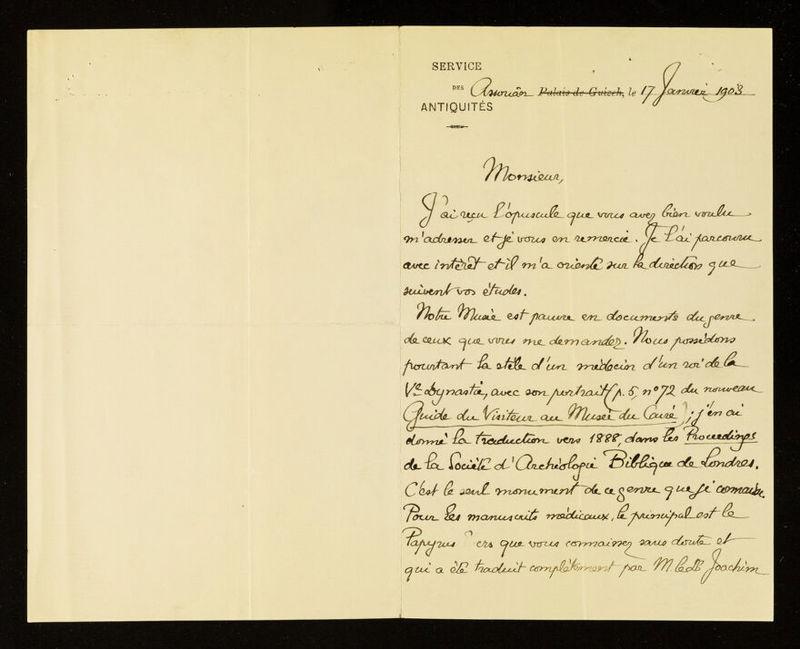 SERVICE
DES
ANTIQUITÉS
Assouân Palais de Guizeh, le 17 Janvier 1903
Monsieur,
J'ai reçu l'opuscule que vous avez bien voulu
m'adresser et je vous en remercie. Je l'ai parcouru
avec intérêt et il m'a orienté sur la direction que
suivent vos études.
Notre Musée est pauvre en documents du genre
de ceux que vous me demandez. Nous possédons
pourtant la stèle d'un médecin d'un roi de la
Ve dynastie, avec son portrait (p. 5, n° 72 du nouveau
Guide du Visiteur au Musée du Caire); j'en ai
donné la traduction vers 1888, dans les Proceedings
de la Société d'Archéologie Biblique de Londres.
C'est le seul monument de ce genre que je connaisse.
Pour les manuscrits médicaux, le principal est le
Papyrus ers que vous connaissez sans doute et
qui a été traduit complètement par M le Dr Joachim